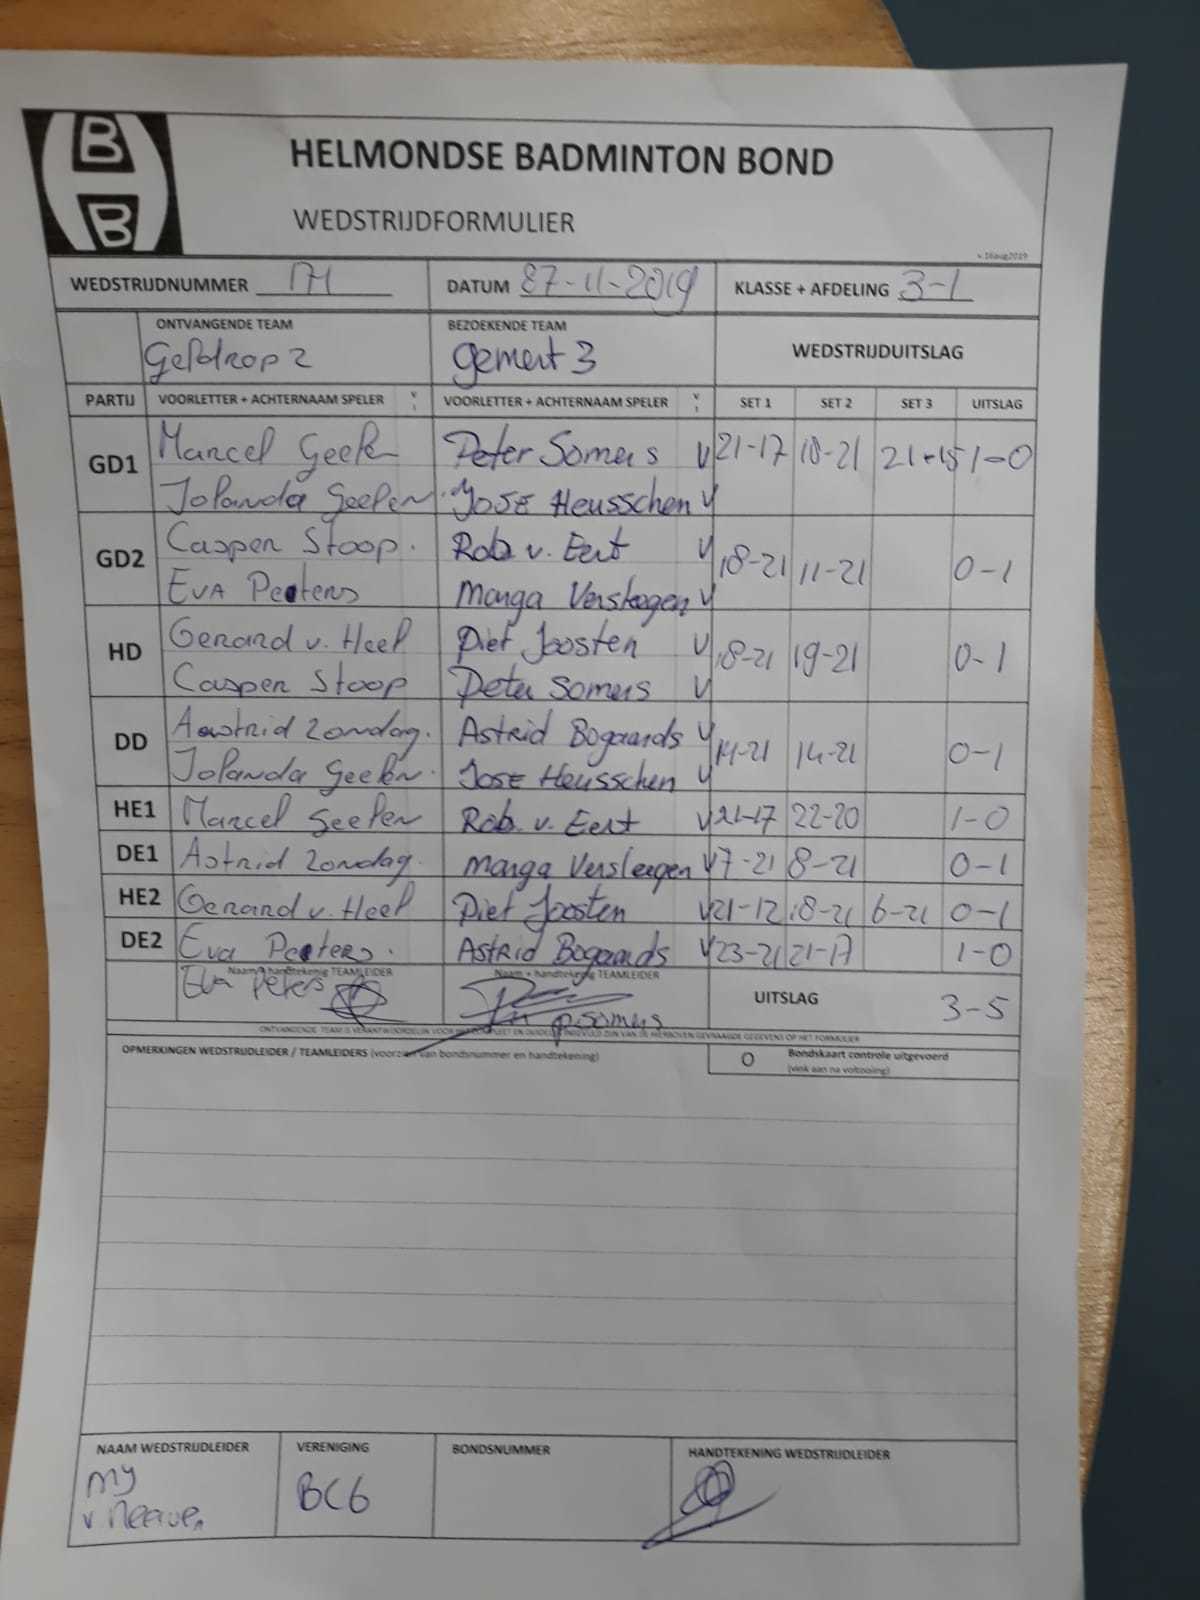 B
B
HELMONDSE BADMINTON BOND
WEDSTRIJDFORMULIER
v.16aug2019
WEDSTRIJDNUMMER 171 DATUM 27-11-2019 KLASSE + AFDELING 3-1
ONTVANGENDE TEAM BEZOEKENDE TEAM WEDSTRIJDUITSLAG
Geldrop 2 Gemert 3
PARTIJ VOORLETTER + ACHTERNAAM SPELER VOORLETTER + ACHTERNAAM SPELER SET 1 SET 2 SET 3 UITSLAG
GD1 Marcel Geelen Peter Somers V 21-17 18-21 21-15 1-0
Jolanda Geelen José Heusschen V
GD2 Casper Stoop. Rob v. Eert V 18-21 11-21 0-1
Eva Peeters Marga Versteegen V
HD Gerard v. Heel Piet Joosten V 18-21 19-21 0-1
Casper Stoop Peter Somers V
DD Astrid Zondag. Astrid Bogaards V 14-21 14-21 0-1
Jolanda Geelen. José Heusschen V
HE1 Marcel Geelen Rob. v. Eert V 21-17 22-20 1-0
DE1 Astrid Zondag. Marga Versteegen V 7-21 8-21 0-1
HE2 Gerard v. Heel Piet Joosten V 21-12 18-21 6-21 0-1
DE2 Eva Peeters. Astrid Bogaards V 23-21 21-17 1-0
Naam + handtekenig TEAMLEIDER Naam + handtekenig TEAMLEIDER
Eva Peters p.somers UITSLAG 3-5
ONTVANGENDE TEAM IS VERANTWOORDELIJK VOOR HET COMPLEET EN DUIDELIJK INGEVULD ZIJN VAN DE HIERBOVEN GEVRAAGDE GEGEVENS OP HET FORMULIER
OPMERKINGEN WEDSTRIJDLEIDER / TEAMLEIDERS (voorzien van bondsnummer en handtekening) O Bondskaart controle uitgevoerd
(vink aan na voltooiing)
NAAM WEDSTRIJDLEIDER VERENIGING BONDSNUMMER HANDTEKENING WEDSTRIJDLEIDER
My BCG